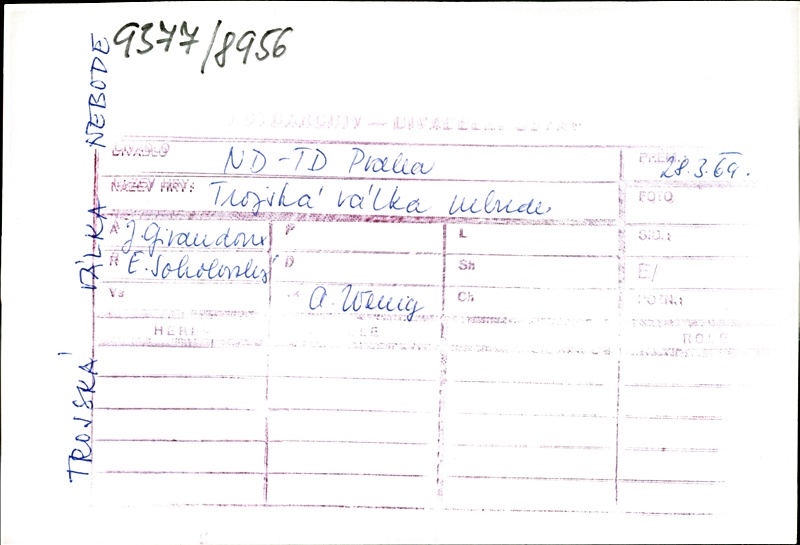 9377/8956
TROJSKÁ VÁLKA NEBODE
DIVADLO ND-TD Praha PREM.: 28.3.69.
NÁZEV HRY: Trojská válka nebude FOTO
A J. Giraudoux P L SIG.:
R E. Sokolovský D Sh E/
Vs A. Wenig Ch POZN.:
ROLE